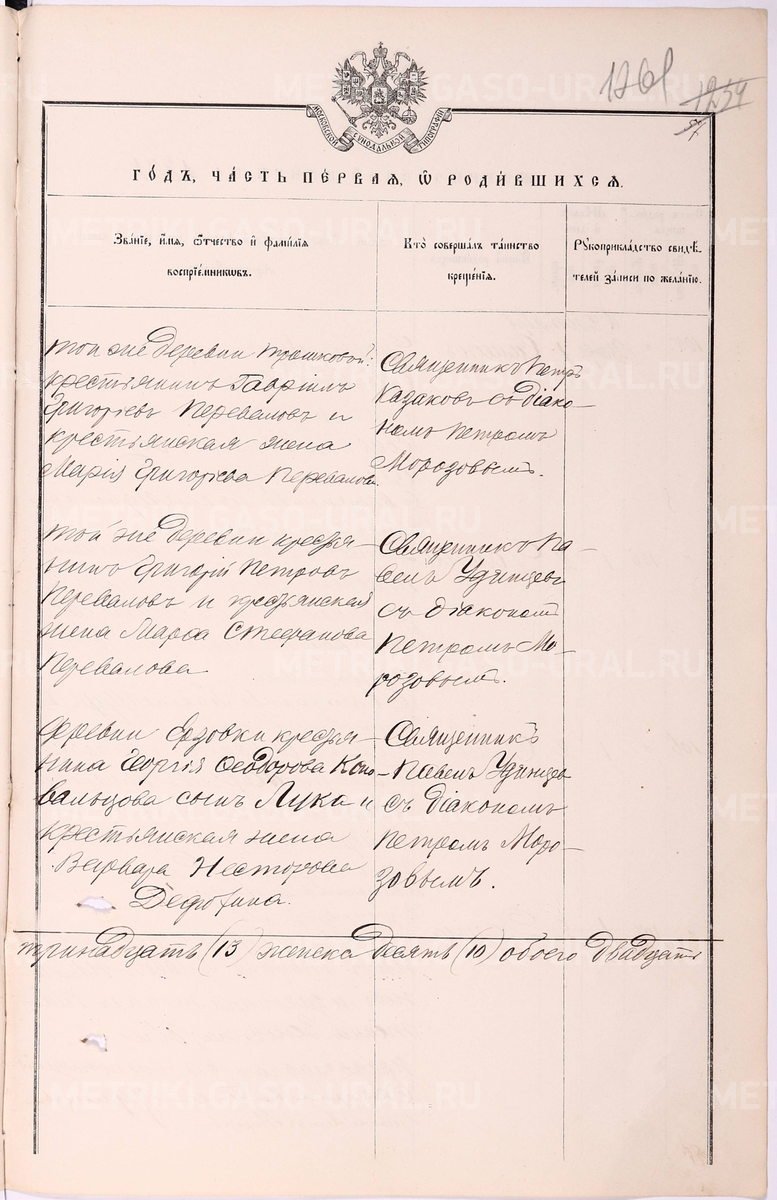 1261
1254
МОСКОВСКОЙ СѴНОДАЛЬНОЙ ТИПОГРАФІИ
ГО́ДЪ, ЧА́СТЬ ПЕ́РВАЯ, Ѽ РОДИ́ВШИХСѦ.
Зва́ніе, и҆́мѧ, ѻ҆́тчество и҆ фами́лїѧ
воспрїе́мникѡвъ.
Кто̀ соверша́лъ та́инство
креще́нїѧ.
Рꙋкоприкла́дство свидѣ́-
телей за́писи по жела́нїю.
той же деревни Трошковой
крестьянинъ Гавріилъ
Григорьевъ Переваловъ и
крестьянская жена
Марія Григорьева Перевалова.
Священникъ Петръ
Казаковъ съ діако-
номъ Петромъ
Морозовымъ.
той же деревни крестья-
нинъ Григорій Петровъ
Переваловъ и крестьянская
жена Марѳа Стефанова
Перевалова
Священникъ Па-
велъ Удинцевъ
съ діакономъ
Петромъ Мо-
розовымъ.
деревни Ерзовки крестья-
нина Георгія Ѳеодорова Коно-
вальцова сынъ Лука и
крестьянская жена
Варвара Несторова
Священникъ
Павелъ Удинцевъ
съ діакономъ
Петромъ Моро-
зовымъ.
тринадцать (13) женска десять (10) обоего двадцать
METRIKI.GASO-URAL.RU